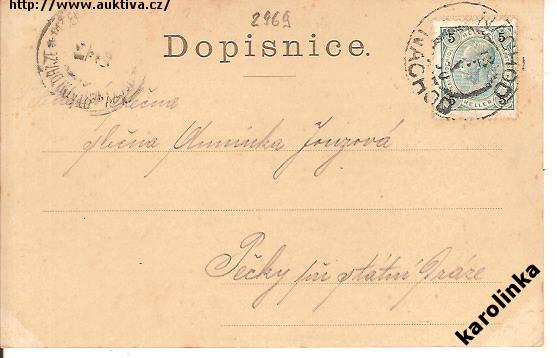 http://www.auktiva.cz/
2969
Dopisnice.
NACHOD
5 5
HELLER
slečna
slečna Aninka Jouzová
Pečky při státní Dráze
karolinka